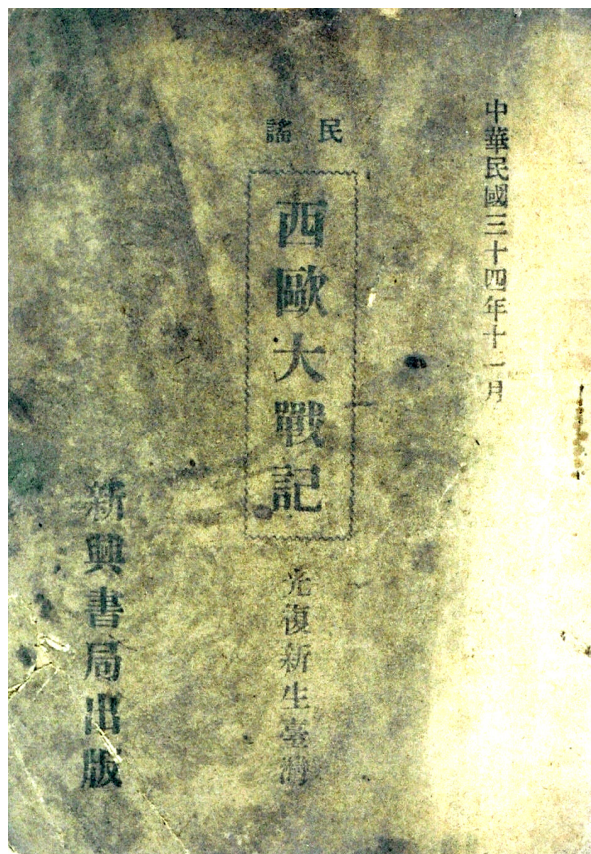 中華民國三十四年十一月
民謠
西歐大戰記
光復新生臺灣
新興書局出版